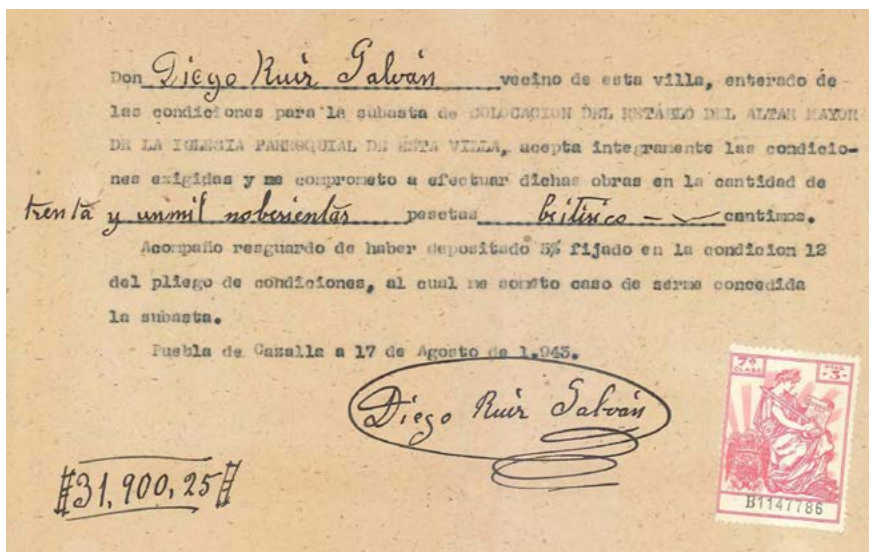 Don Diego Ruiz Galván vecino de esta villa, enterado de
las condiciones para la subasta de COLOCACION DEL RETABLO DEL ALTAR MAYOR
DE LA IGLESIA PARROQUIAL DE ESTA VILLA, acepta integramente las condicio-
nes exigidas y me comprometo a efectuar dichas obras en la cantidad de
trenta y unmil nobesientas pesetas centimos.
Acompaño resguardo de haber depositado 5% fijado en la condicion 12
del pliego de condiciones, al cual me someto caso de serme concedida
la subasta.
Puebla de Cazalla a 17 de Agosto de 1.943.
Diego Ruiz Galván
#31,900,25#
7ª CLASE
B1147786